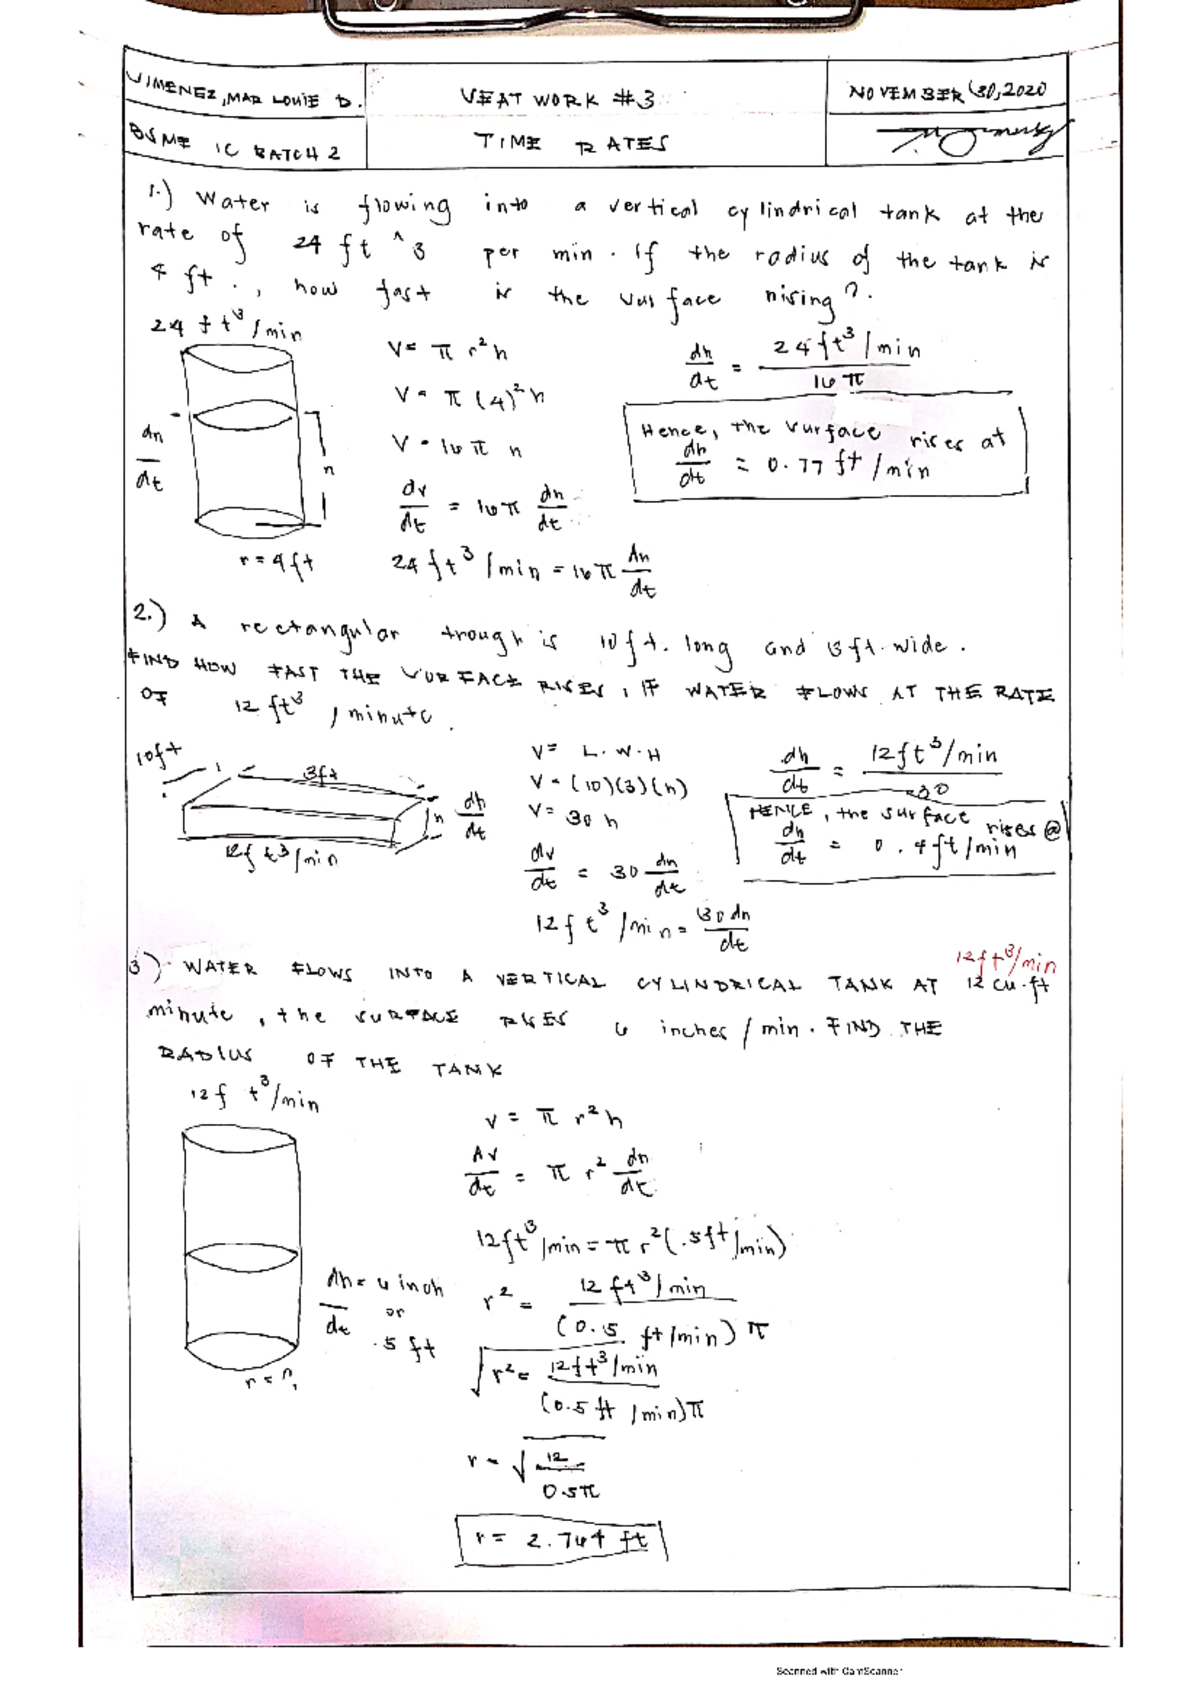 JIMENEZ, MAR LOUIE D.
SEAT WORK #3
NOVEMBER 30, 2020
BSME 1C BATCH 2
TIME RATES
1.) Water is flowing into a vertical cylindrical tank at the
rate of 24 ft ^ 3 per min. If the radius of the tank is
4 ft., how fast is the surface rising?.
24 ft³/min
dh/dt
h
r = 4ft
V = π r² h
V = π (4)² h
V = 16 π h
dv/dt = 16π dh/dt
24 ft³/min = 16π dh/dt
dh/dt = 24 ft³/min / 16π
Hence, the surface rises at
dh/dt = 0.77 ft/min
2.) A rectangular trough is 10 ft. long and 3 ft. wide.
FIND HOW FAST THE SURFACE RISES, IF WATER FLOWS AT THE RATE
OF 12 ft³ / minute.
10ft
3ft
h
dh/dt
12 ft³/min
V = L. W. H
V = (10)(3)(h)
V = 30 h
dv/dt = 30 dh/dt
12 ft³/min = 30 dh/dt
dh/dt = 12 ft³/min / 30
HENCE, the surface rises @
dh/dt = 0.4 ft/min
12 ft³/min
3) WATER FLOWS INTO A VERTICAL CYLINDRICAL TANK AT 12 cu.ft
minute, the SURFACE RISES 6 inches / min. FIND THE
RADIUS OF THE TANK
12 ft³/min
dh/dt = 6 inch
or
.5 ft
V = π r² h
dv/dt = π r² dh/dt
12ft³/min = π r² (.5ft/min)
r² = 12 ft³/min / (0.5 ft/min) π
√r² = 12ft³/min / (0.5 ft/min)π
r = √12 / 0.5π
r = 2.764 ft
Scanned with CamScanner